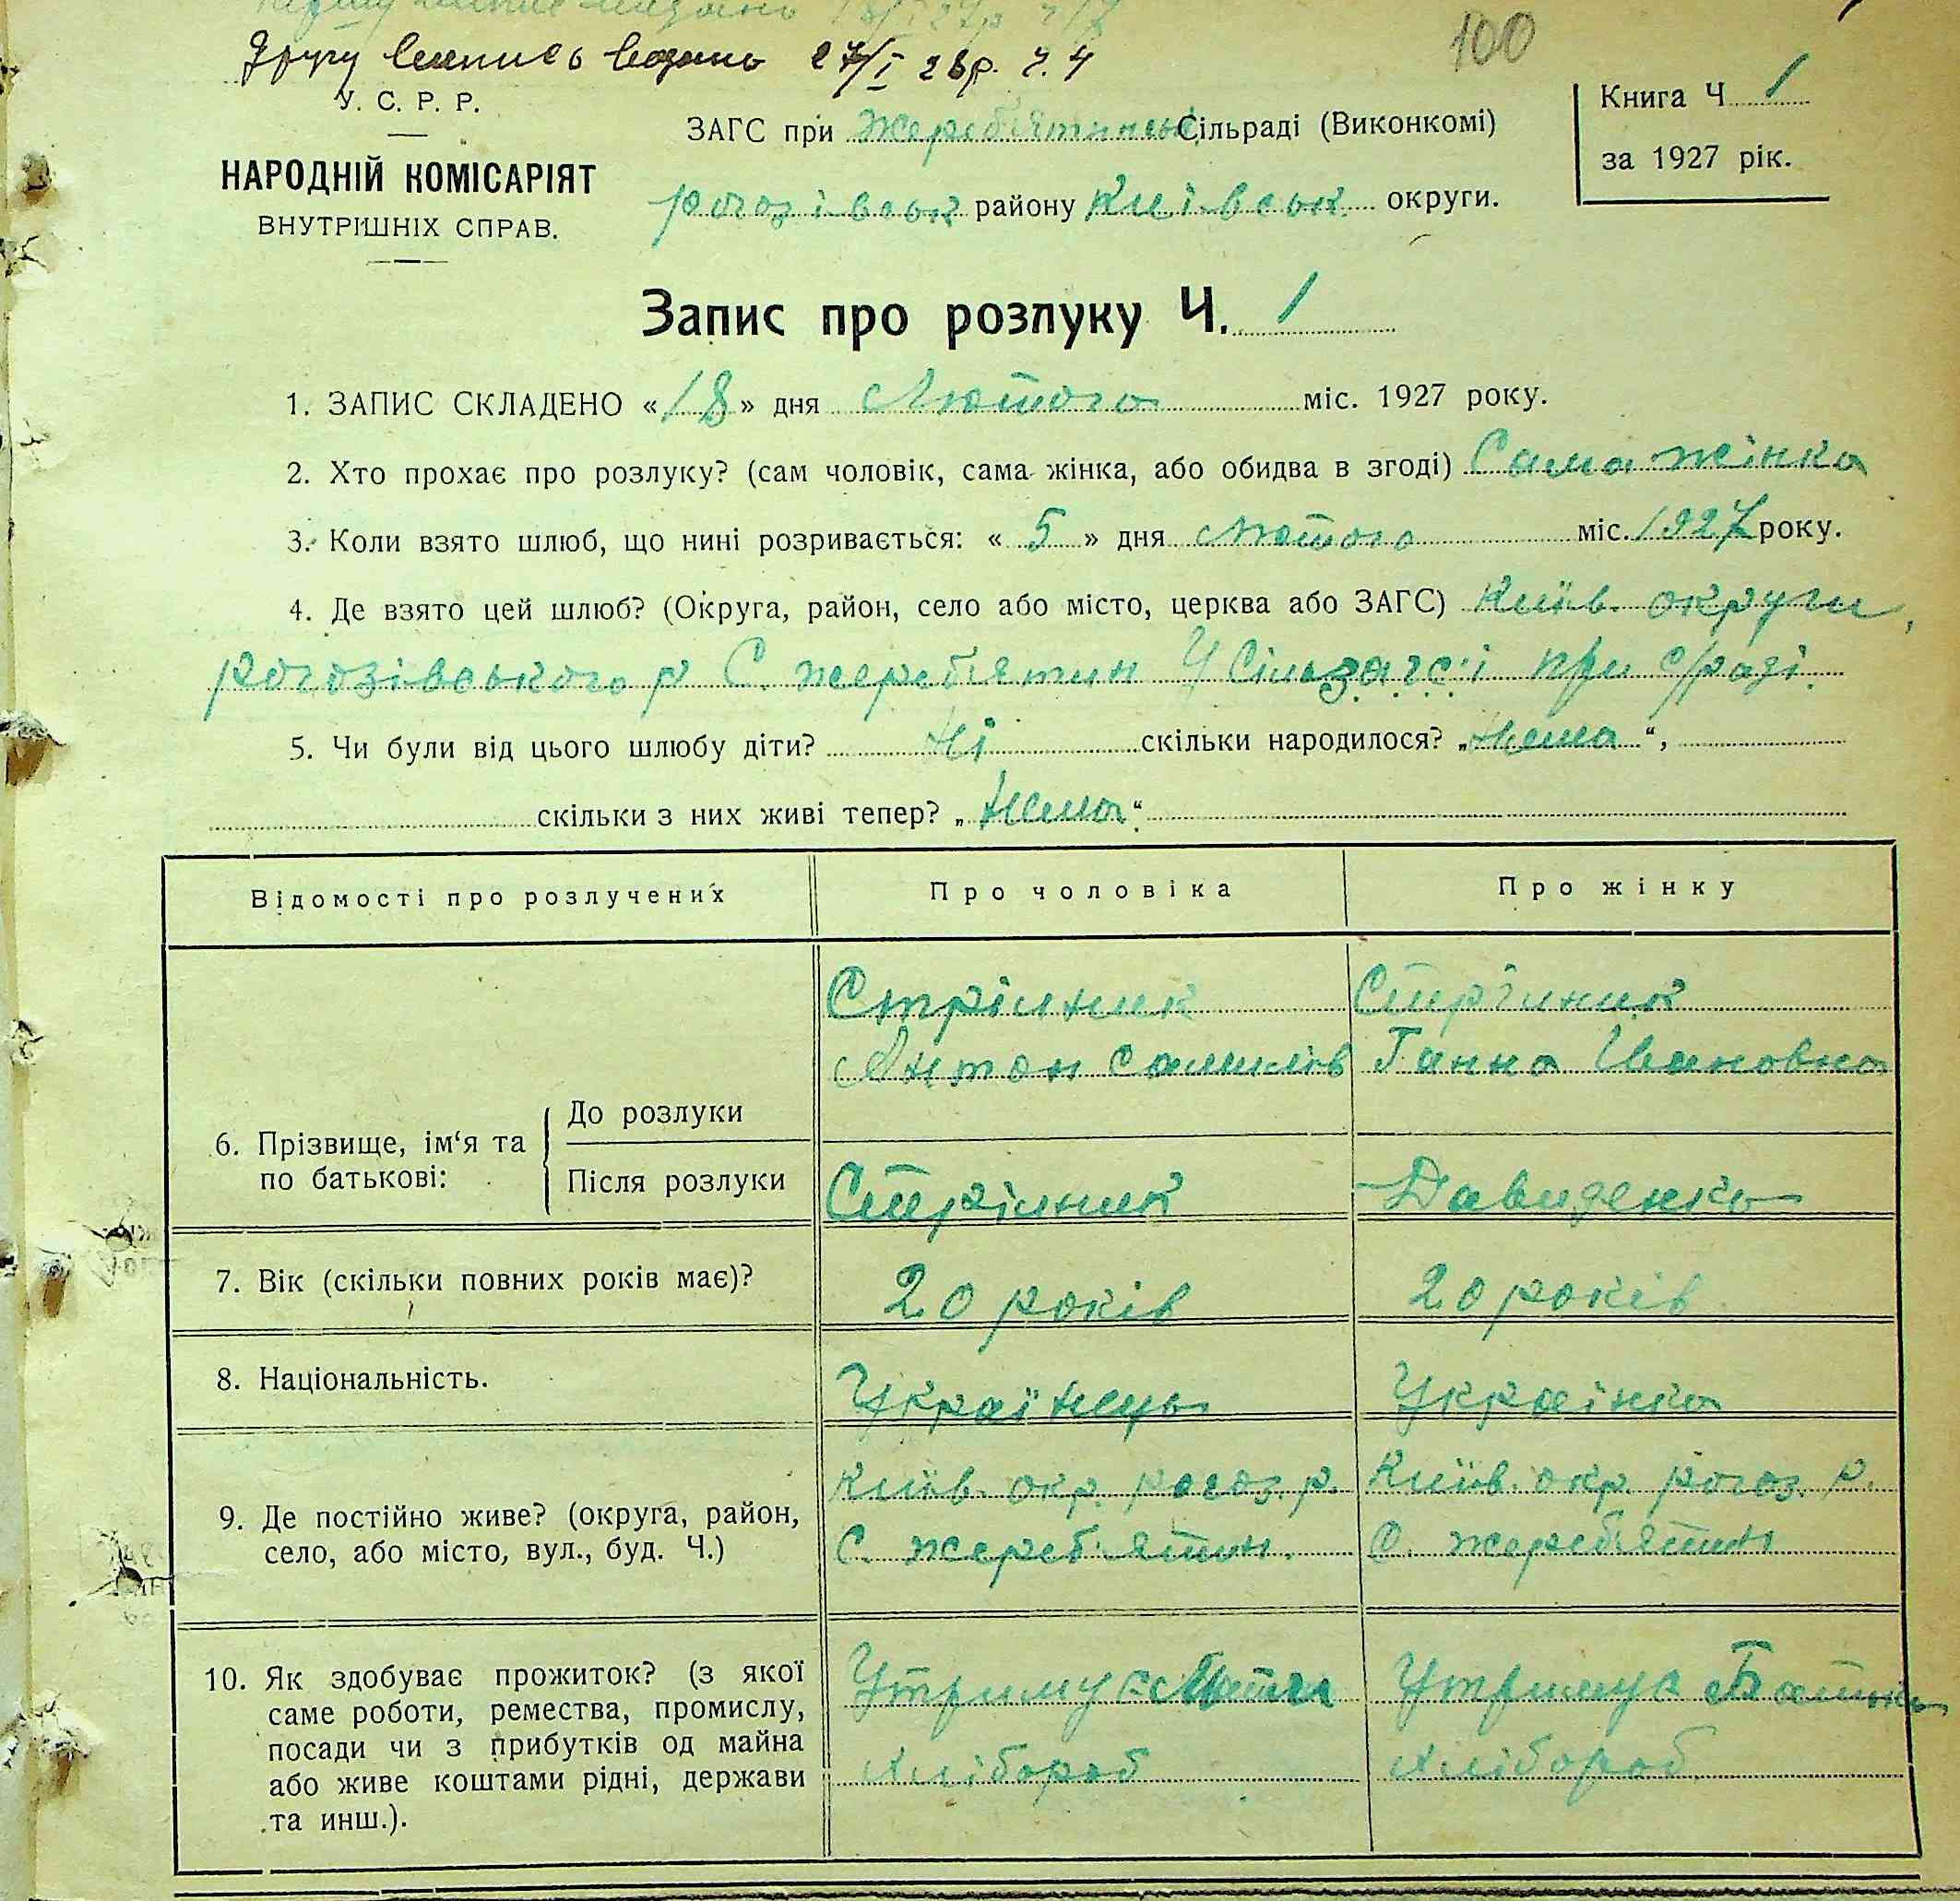 Другу випись видано 27/I 28р. ч. 4
100
У. С. Р. Р.
НАРОДНІЙ КОМІСАРІЯТ
ВНУТРІШНІХ СПРАВ.
ЗАГС при Жереб'ятинськ Сільраді (Виконкомі)
рогозівськ району Київськ округи.
Книга Ч 1
за 1927 рік.
Запис про розлуку Ч. 1
1. ЗАПИС СКЛАДЕНО «18» дня Лютого міс. 1927 року.
2. Хто прохає про розлуку? (сам чоловік, сама жінка, або обидва в згоді) Сама жінка
3. Коли взято шлюб, що нині розривається: «5» дня Лютого міс. 1927 року.
4. Де взято цей шлюб? (Округа, район, село або місто, церква або ЗАГС) Київ. округи,
рогозівського р С. жереб'ятин У Сільзагсі при с/раді.
5. Чи були від цього шлюбу діти? Ні скільки народилося? „Нема“,
скільки з них живі тепер? „Нема“
Відомості про розлучених Про чоловіка Про жінку
Стрілник Стрілник
Антон Самилів Ганна Івановна
6. Прізвище, ім‘я та по батькові:
До розлуки
Після розлуки Стрілник Давиденко
7. Вік (скільки повних років має)? 20 років 20 років
8. Національність. Українець Українка
Київ. окр. рогоз. р. Київ. окр. рогоз. р.
9. Де постійно живе? (округа, район, С. жереб'ятин. С. жереб'ятин
село, або місто, вул., буд. Ч.)
10. Як здобуває прожиток? (з якої Утримує Утримує Батько
саме роботи, ремества, промислу,
посади чи з прибутків од майна Хлібороб Хлібороб
або живе коштами рідні, держави
та инш.).